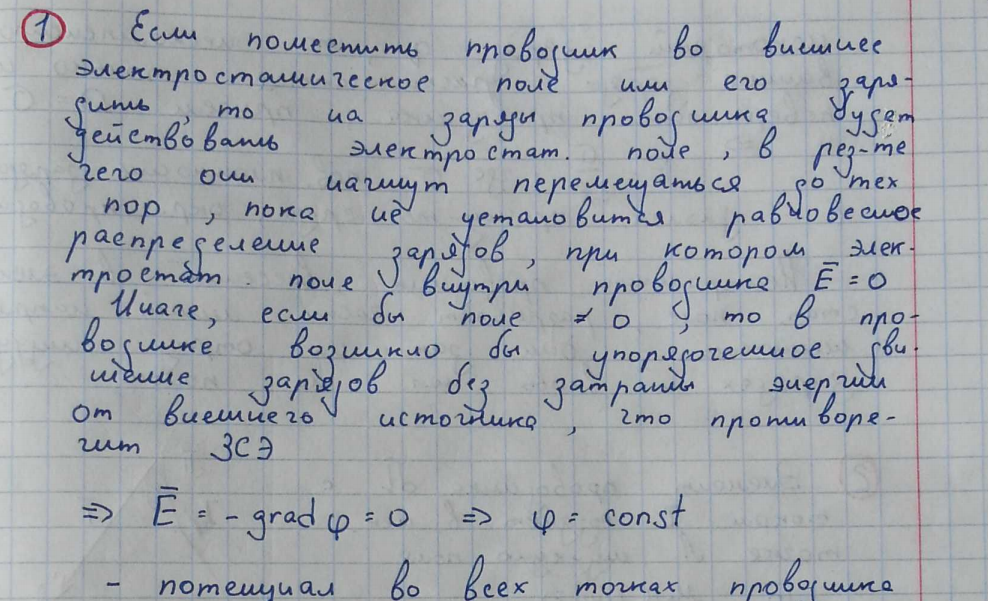 1 Если поместить проводник во внешнее
электростатическое поле или его заря-
дить, то на заряды проводника будет
действовать электростат. поле, в рез-те
чего они начнут перемещаться до тех
пор, пока не установится равновесное
распределение зарядов, при котором элек-
тростат. поле внутри проводника E̅ = 0
Иначе, если бы поле ≠ 0, то в про-
воднике возникло бы упорядоченное дви-
жение зарядов без затраты энергии
от внешнего источника, что противоре-
чит ЗСЭ
⇒ E̅ = - grad φ = 0 ⇒ φ = const
- потенциал во всех точках проводника